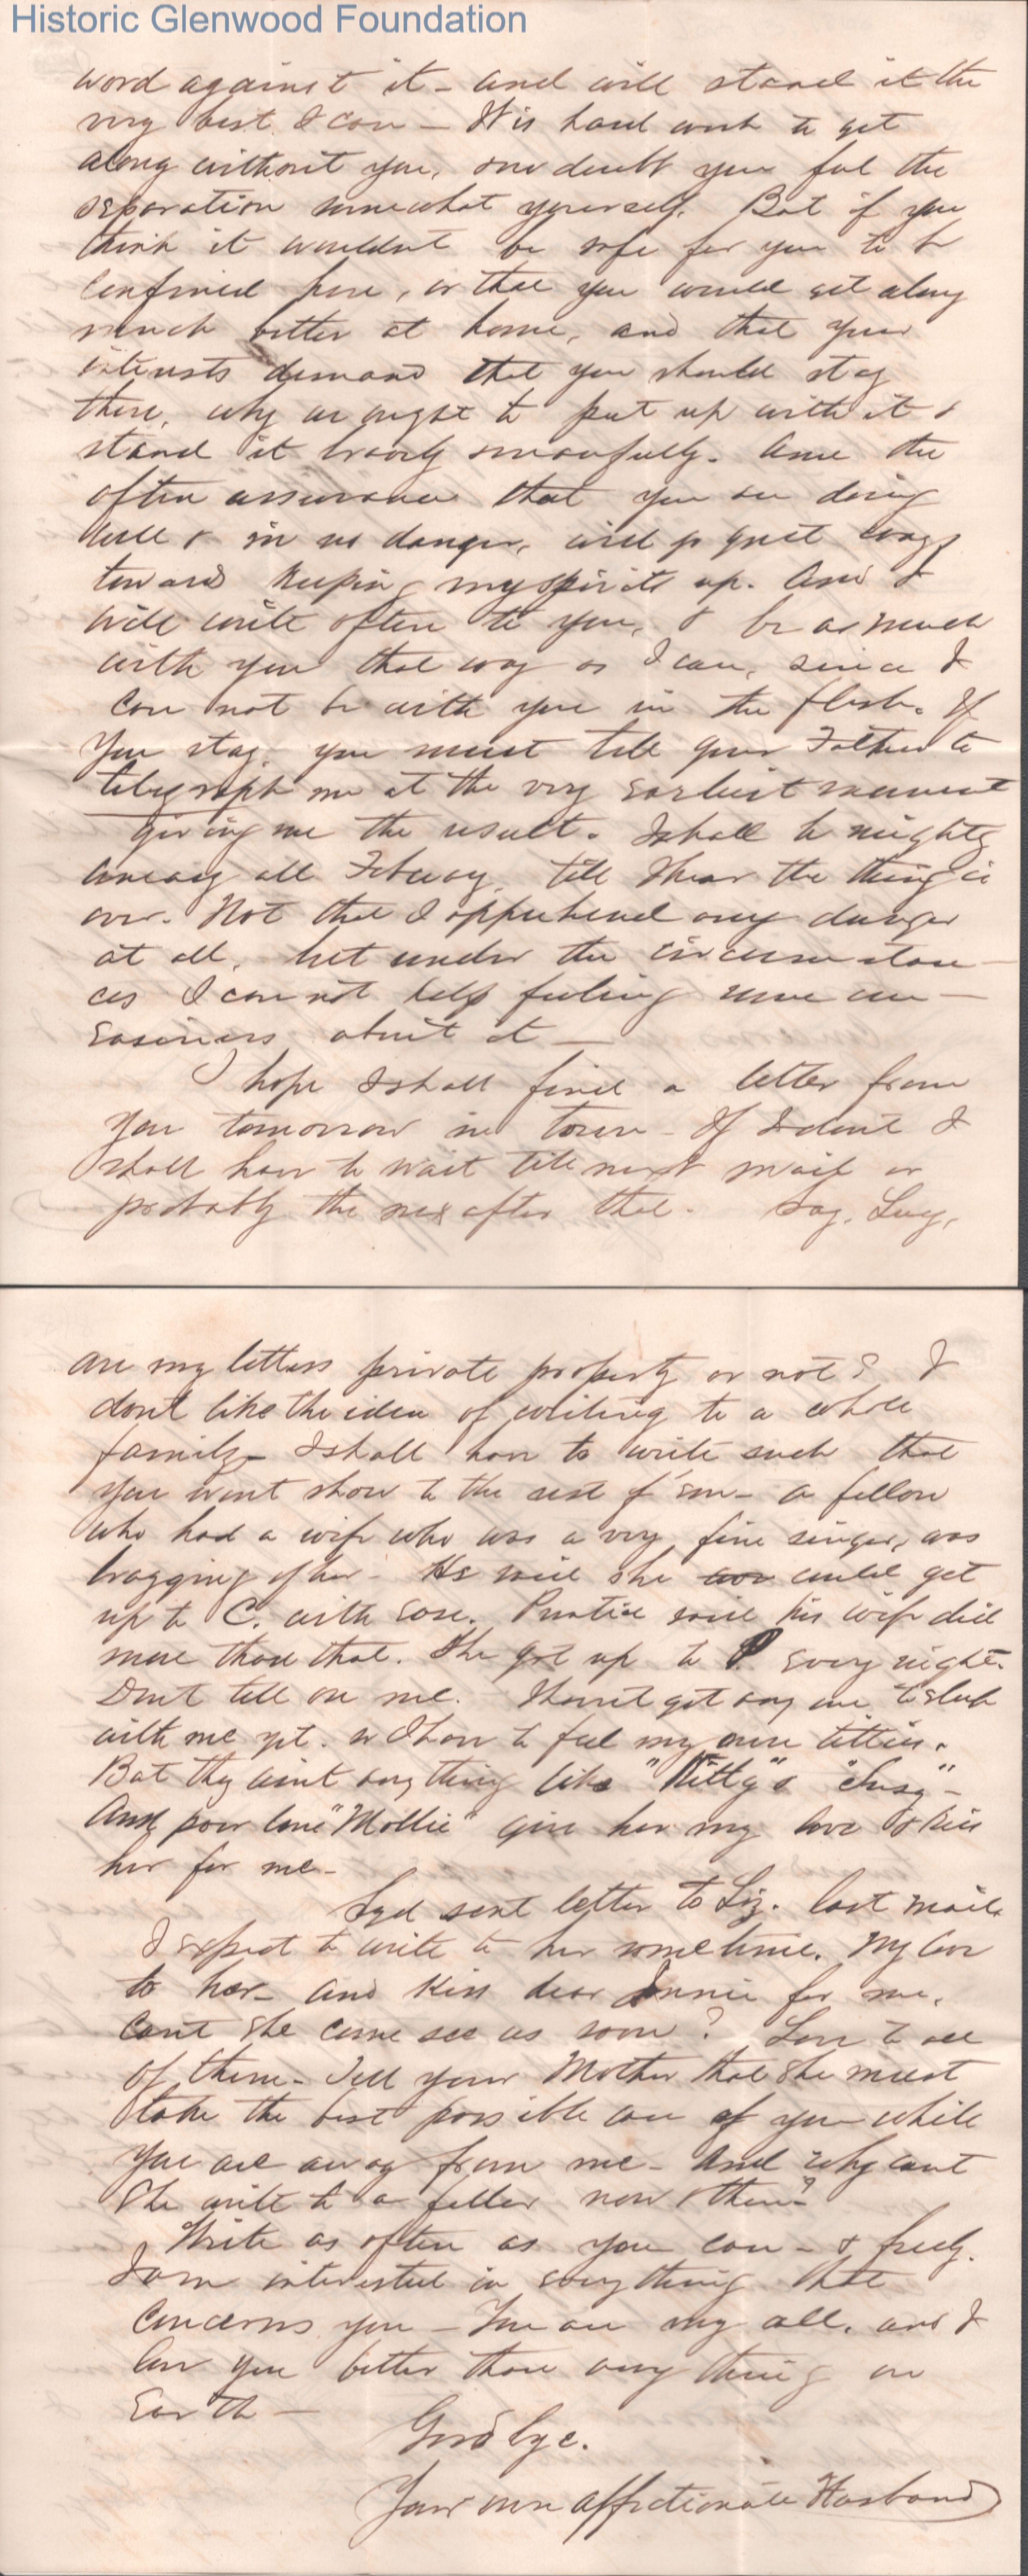 Historic Glenwood Foundation
word against it - and will stand it the
very best I can - It is hard work to get
along without you, no doubt you feel the
separation somewhat yourself. But if you
think it wouldnt be safe for you to be
confined here, or that you would get along
much better at home, and that your
interests demand that you should stay
there, why we ought to put up with it &
stand it bravely manfully. And the
often assurance that you are doing
well & in no danger, will go great ways
toward keeping my spirits up. And I
will write often to you, & be as much
with you that way as I can, since I
can not be with you in the flesh. If
you stay, you must tell your Father to
telegraph me at the very earliest moment
giving me the result. I shall be mighty
uneasy all February, till I hear the thing is
over. Not that I apprehend any danger
at all, but under the circumstan-
ces I can not help feeling some un-
easiness about it -
I hope I shall find a letter from
you tomorrow in town - If I dont I
shall have to wait till next mail or
probably the next after that. Say, Lucy,
are my letters private property or not? I
dont like the idea of writing to a whole
family - I shall have to write such that
you wont show to the rest of 'em - A fellow
who had a wife who was a very fine singer, was
bragging of her - He said she could get
up to C. with ease. Prentice said his wife did
more than that. She got up to P. every night.
Dont tell on me. I havnt got any one to sleep
with me yet. so I have to feel my own titties.
But they aint any thing like "Kitty" & "Susy" -
And poor lone "Mollie" give her my love & kiss
her for me -
Syd sent letter to Liz. last mail.
I expect to write to her sometime. My love
to her - and kiss dear Annie for me.
Cant she come see us soon? Love to all
of them - Tell your Mother that she must
take the best possible care of you while
you are away from me - And why cant
she write to a feller now & then?
Write as often as you can - & freely.
I am interested in everything that
concerns you - You are my all, and I
love you better than any thing on
Earth -
Good bye.
Your own affectionate Husband